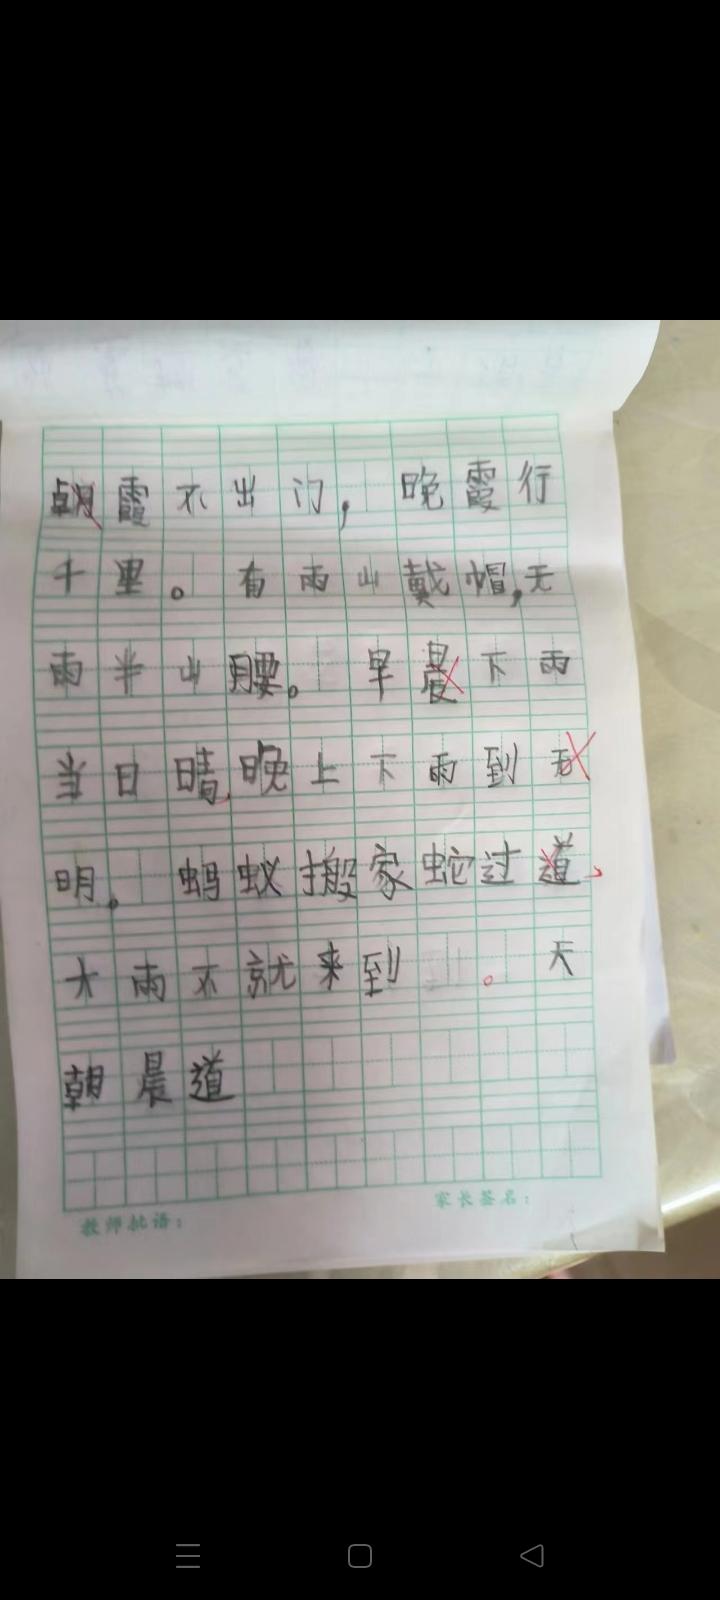 朝霞不出门，晚霞行
千里。有雨山戴帽，无
雨半山腰。早晨下雨
当日晴，晚上下雨到天
明。蚂蚁搬家蛇过道、
大雨不就来到。天
朝晨道
教师批语：
家长签名：